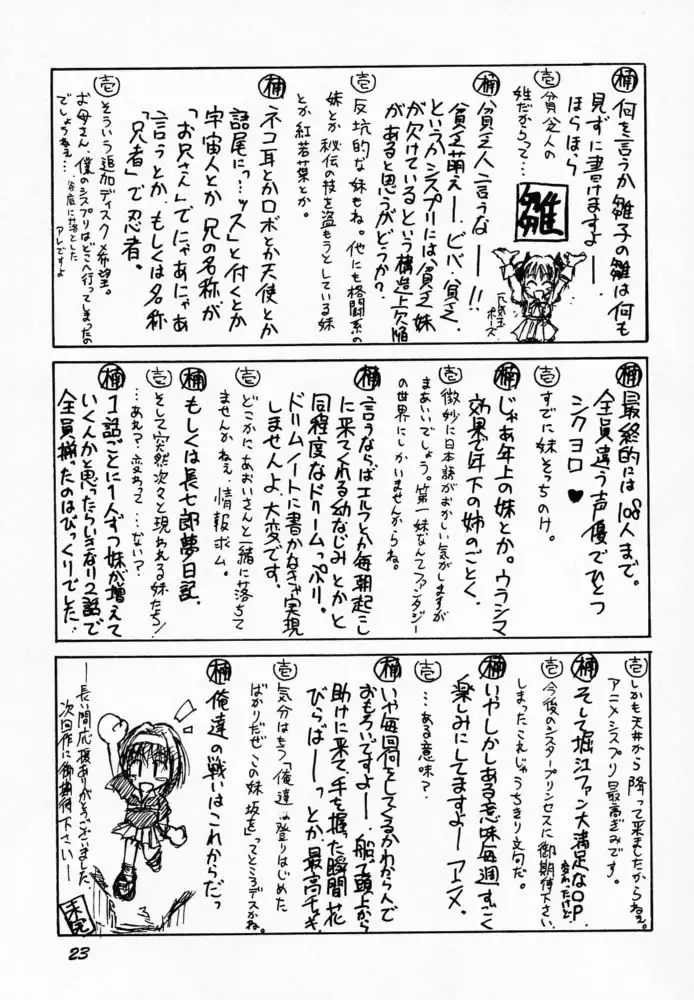 楠 何を言うか雛子の雛は何も
見ずに書けますよー
ほらほら
壱 貧乏人の
姓だからって…
雛
元気玉
ポーズ
楠 貧乏人言うなーー!!
貧乏萌えー、ビバ貧乏、
というかシスプリには、貧乏妹
が欠けているという構造上欠陥
があると思うがどうか?
壱 反抗的な妹もね。他にも格闘系の
妹とか秘伝の技を盗もうとしている妹
とか紅若葉とか。
楠 ネコ耳とかロボとか天使とか
語尾に「…ッス」と付くとか
宇宙人とか兄の名称が
「お兄さん」でにゃあにゃあ
言うとか、もしくは名称
「兄者」で忍者。
壱 そういう追加ディスク×希望。
お母さん、僕のシスプリはどこへ行ってしまったの
でしょうねえ…
谷底に落とした
アレですよ
楠 最終的には108人まで。
全員違う声優でひとつ
シクヨロ♥
壱 すでに妹そっちのけ。
楠 じゃあ年上の妹とか。ウラシマ
効果で年下の姉のごとく、
壱 微妙に日本語がおかしい気がしますが
まあいいでしょう。第一妹なんてファンタジー
の世界にしかいませんからね。
楠 言うならばエルフとか毎朝起こし
に来てくれる幼なじみとかと
同程度なドリームっぷり。
ドリムノートに書かなきゃ実現
しませんよ、大変です。
壱 どこかに、あおいさんと一緒に落ちて
ませんかねえ、情報求ム。
楠 もしくは長七郎夢日記。
壱 そして突然次々と現われる妹たち!
…あれ?変わって…ない?
楠 1話ごとに1人ずつ妹が増えて
いくんかと思ったらいきなり2話で
全員揃ったのはびっくりでした!
壱 しかも天井から降って来ましたからねえ。
アニメシスプリ最高ぎみです。
楠 そして堀江ファン大満足なOP
変わったけど。
壱 今後のシスタープリンセスに御期待下さい。
しまったこれじゃうちきり文句だ。
楠 いやしかしある意味毎週すごく
楽しみにしてますよーアニメ。
壱 …ある意味?
楠 いや毎回何をしてくるかわからんで
おもろいですよー、船で頭上から
助けに来て、手を握った瞬間花
びらばーーっとか最高っすギ。
壱 気分はもう「俺達は登りはじめた
ばかりだぜこの妹坂を」ってところデスかね。
楠 俺達の戦いはこれからだっ
ー長い間応援ありがとうございました。
次回作に御期待下さいー
未完
23